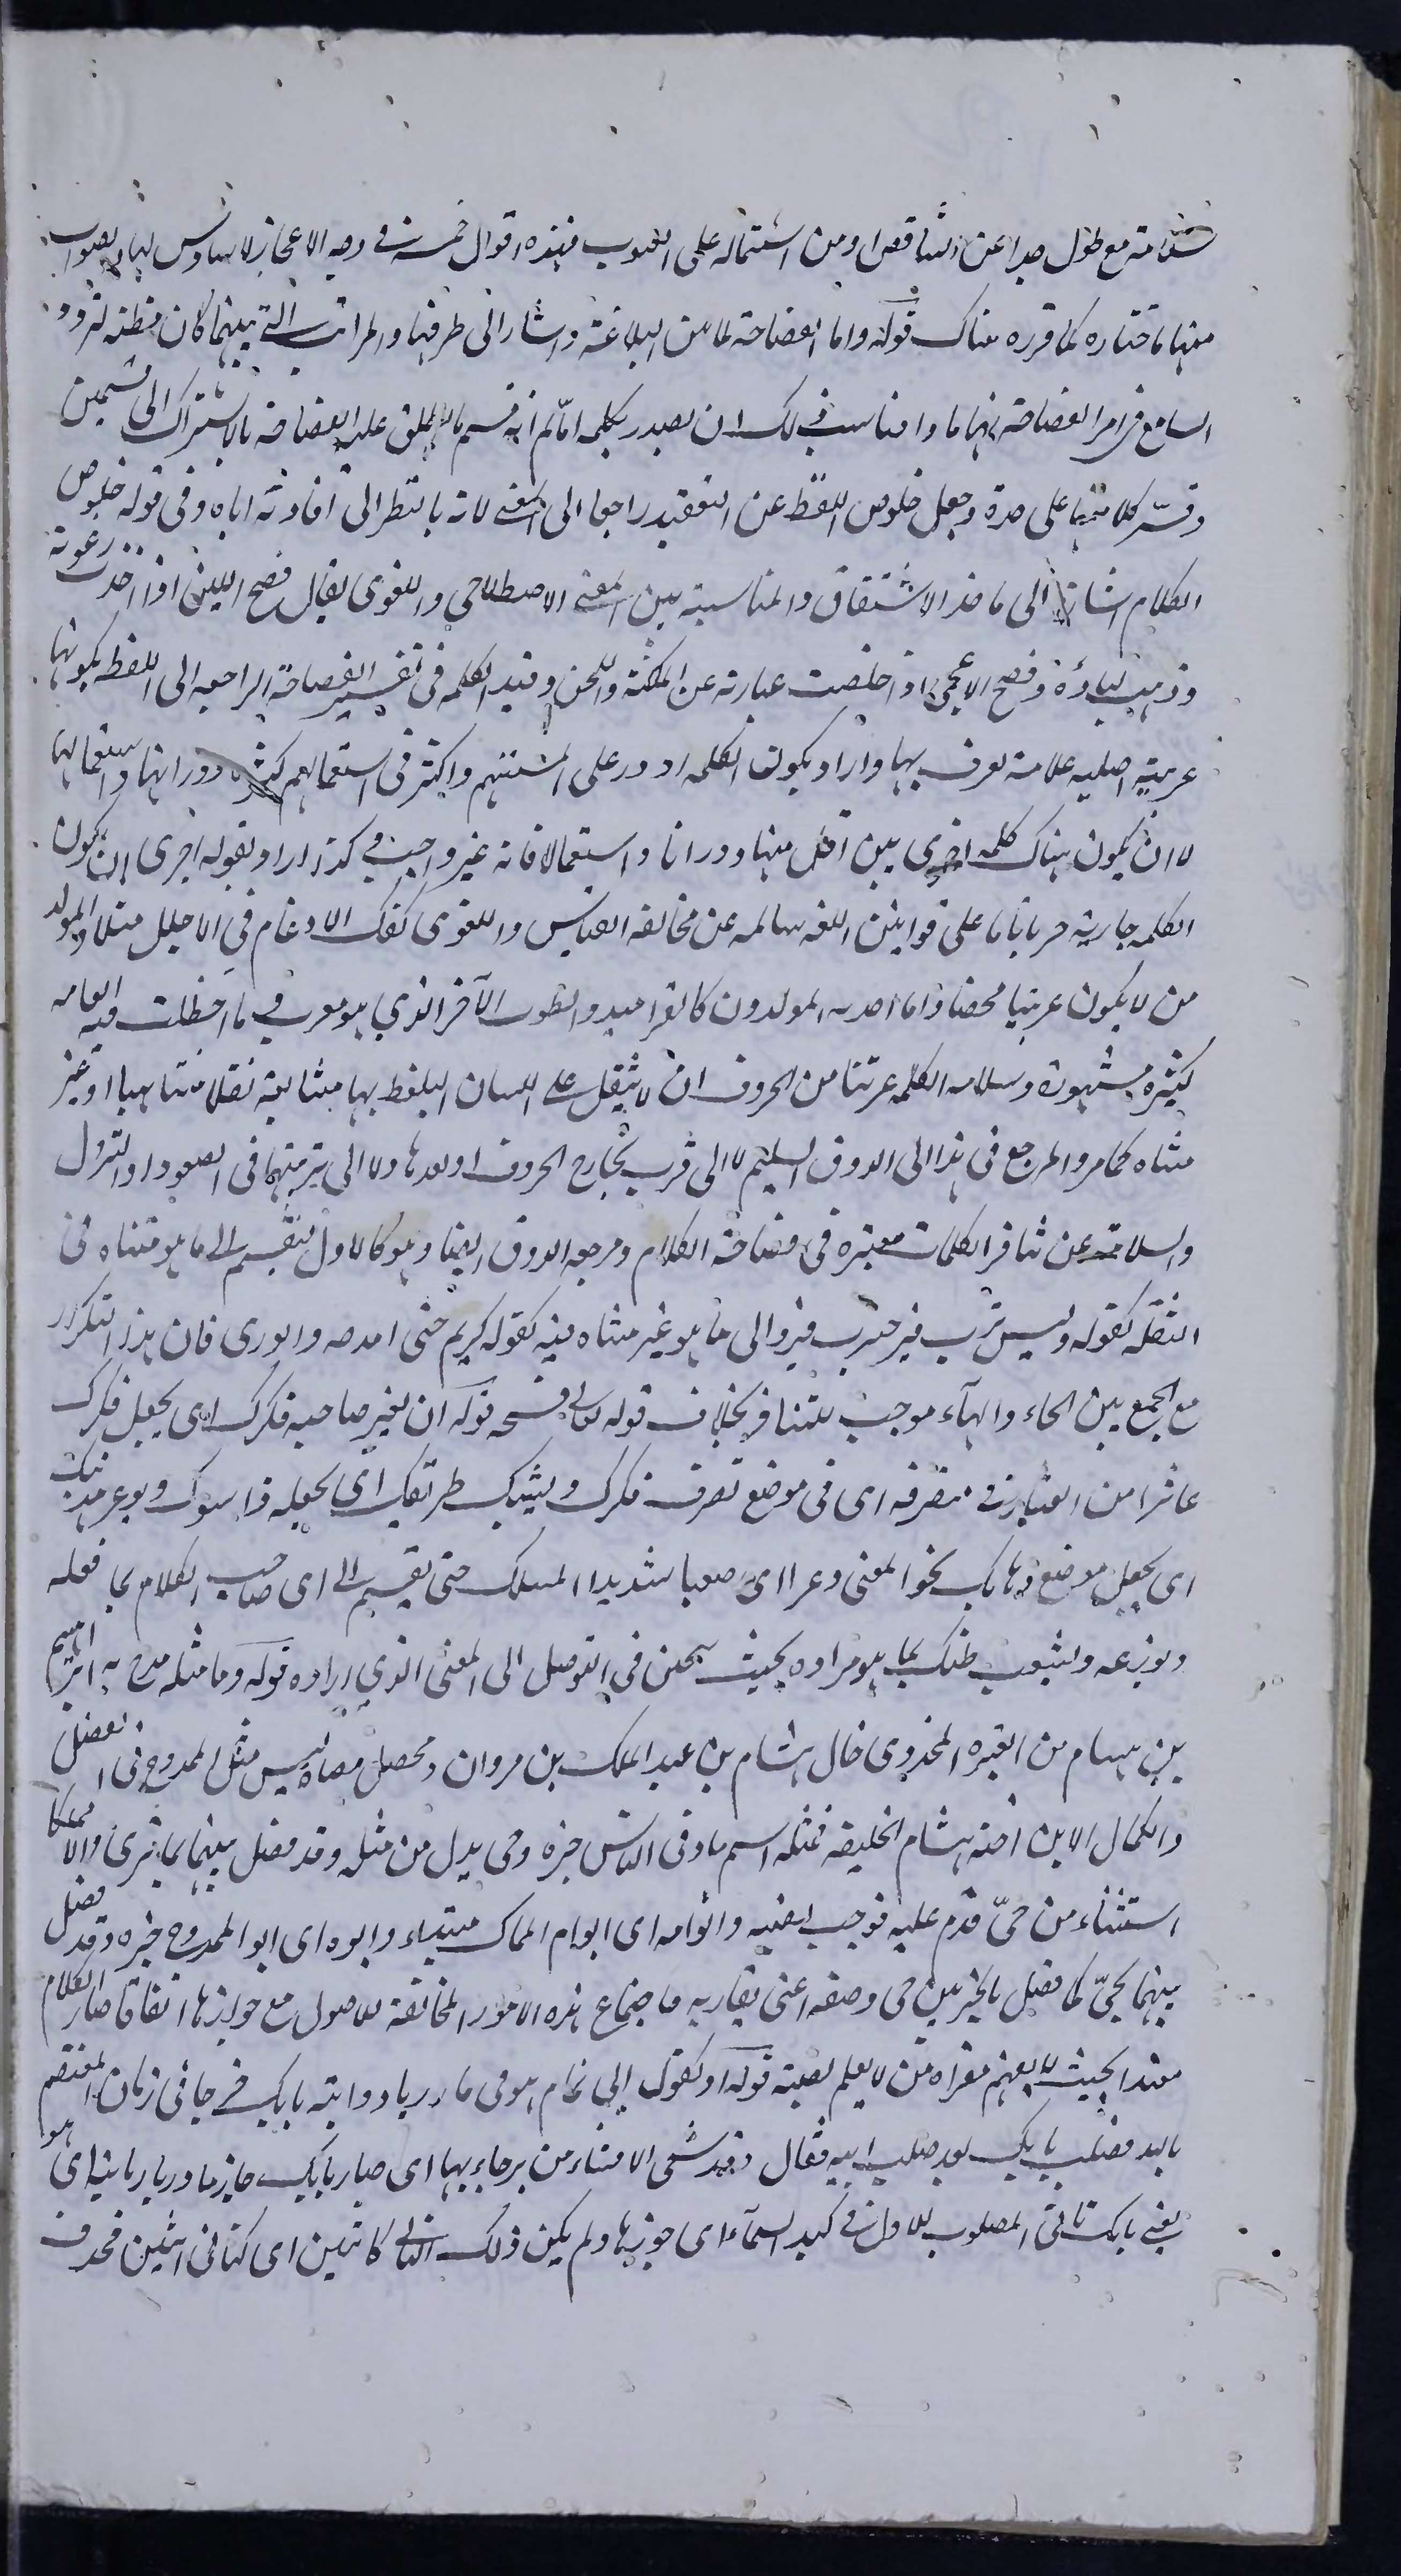 سلامته مع طول جدا عن التناقص او من اشتماله على الغيوب فهذه اقوال خمسة في وجه الاعجاز لا سادس لها والصواب
منها ما اختاره كما قرره هناك قوله واما الفصاحة لما بين البلاغة واشار الى طرفيها والمراتب التي بينهما كان مظنة لتردد
السامع في امر الفصاحة انها ماذا فناسب ذلك ان يصدر بكلمة اما ثم انه قسم ما يطلق عليه الفصاحة بالاشتراك الى قسمين
وفسّر كلا منهما على حدة وجعل خلوص اللفظ عن التعقيد راجعا الى المعنى لانه بالنظر الى افادته اياه وفي قوله خلوص
الكلام اشارة الى ماخذ الاشتقاق والمناسبة بين المعنى الاصطلاحي واللغوي يقال فصح اللبن اذا اخذت رغوته
وذهب لباؤه وفصح الاعجمي اذا خلصت عبارته عن اللكنة واللحن وقيد الكلمة في تفسير الفصاحة الراجعة الى اللفظ بكونها
عربية اصلية علامة تعرف بها واراد بكون الكلمة ادور على السنتهم واكثر في استعمالهم كثرة دورانها واستعمالها
لا ان يكون هناك كلمة اخرى هي اقل منها دورانا واستعمالا فانه غير واجب كذا اراد بقوله اجرى ان يكون
الكلمة جارية جريانا ما على قوانين اللغة سالمة عن مخالفة القياس واللغوي كفك الادغام في الاجلل مثلا والمولد
من لا يكون عربيا محضا واما احدثه المولدون كالقراميد والطوب الآخر الذي هو معرب في ما اخطأت فيه العامة
كثيرة مشهورة وسلامة الكلمة عن تنافر الحروف ان لا يثقل على اللسان التلفظ بها متتابعة ثقلا متناهيا او غير
متناه كما مر والمرجع في هذا الى الذوق السليم لا الى قرب مخارج الحروف او بعدها ولا الى ترتيبها في الصعود او النزول
والسلامة عن تنافر الكلمات معتبرة في فصاحة الكلام ومرجعه الذوق ايضا وهو كالاول ينقسم الى ما هو متناه في
الثقل كقوله وليس قرب قبر حرب قبر والى ما هو غير متناه فيه كقوله كريم متى امدحه والورى فان هذا التكرار
مع الجمع بين الحاء والهاء موجب للتنافر بخلاف قوله تعالى فسبحه قوله ان يعثر صاحبه فكرك اى يجعل فكرك
عاثرا من العثار في متصرفه اى في موضع تصرف فكرك ويشيك طريقك اى يجعله ذا شوك ويوعر مذهبك
اى يجعل موضع ذهابك نحو المعنى وعرا اى صعبا شديد المسلك حتى يقسم الى اى صاحب الكلام بما فعله
ويوزعه ويشعب ظنك بما هو مراده بحيث تتحير في التوصل الى المعنى الذي اراده قوله وما مثله مدح به ابراهيم
بن هشام بن المغيرة المخزومي خال هشام بن عبد الملك بن مروان ومحصل معناه ليس مثل الممدوح في الفضل
والكمال الا ابن اخته هشام الخليفة فمثله اسم ما وفي الناس خبره وحي بدل من مثله وقد فصل بينهما بما ترى والا مملكا
استثناء من حيّ قدم عليه فوجب نصبه وابو امه اى ابو ام الملك مبتداء وابوه اى ابو الممدوح خبره وقد فصل
بينهما بحيّ كما فصل بالخبر بين حي وصفته اعنى يقاربه فاجتماع هذه الامور المخالفة للاصول مع جوازها اتفاقا صار الكلام
معقدا بحيث لا يفهم مغزاه من لا يعلم قصته قوله او كقول ابي تمام هو في مازيار ودابته بابك خرجا في زمان المعتصم
بالله فصلب بابك بعد صلبه اياه فقال وقد شفى الاحشاء من برحائها اى صار بابك جار مازيار ثانيه اى هو
يعني بابك ثاني المصلوب للاول في كبد السماء اى جوزها ولم يكن ذلك الثاني كاثنين اى كثاني اثنين فحذف